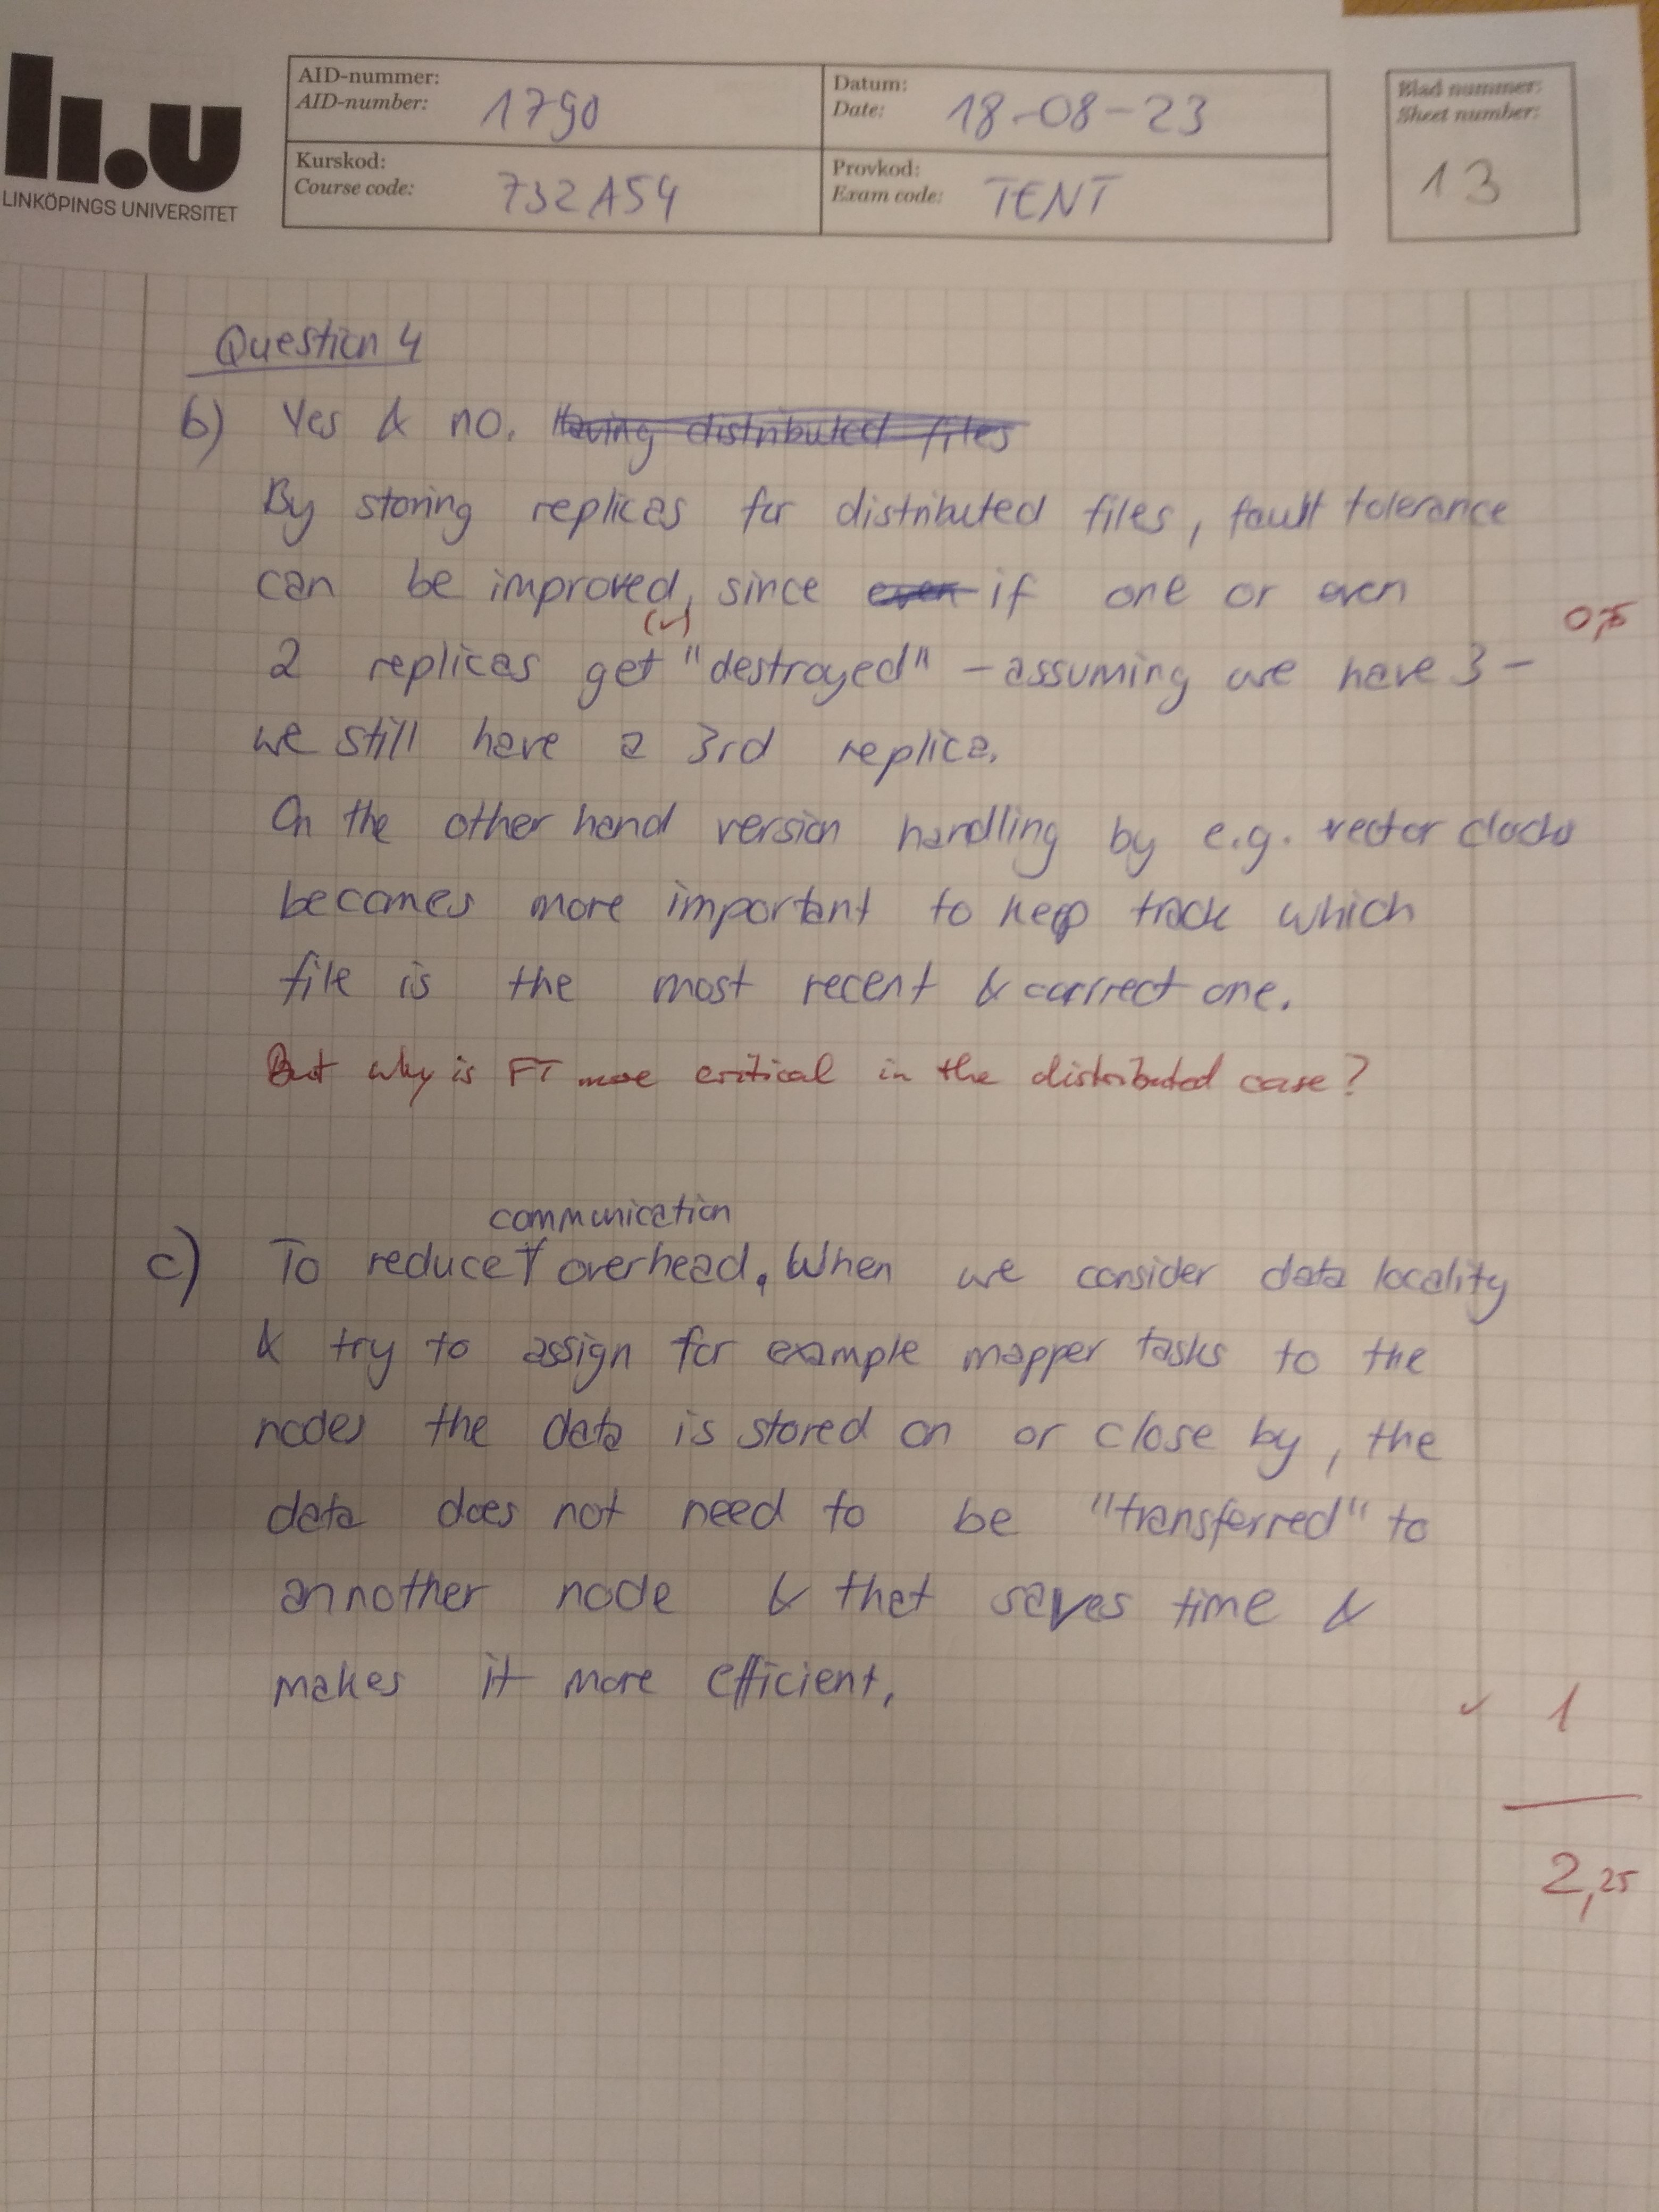 li.u
LINKÖPINGS UNIVERSITET
AID-nummer:
AID-number: 1790
Datum:
Date: 18-08-23
Kurskod:
Course code: 732A54
Provkod:
Exam code: TENT
Blad nummer:
Sheet number:
13
Question 4
b) Yes & no. Having distributed files
By storing replicas for distributed files, fault tolerance
can be improved, since even if one or even
(✓)
0,5
2 replicas get "destroyed" - assuming we have 3 -
we still have a 3rd replica.
On the other hand version handling by e.g. vector clocks
becomes more important to keep track which
file is the most recent & correct one.
But why is FT more critical in the distributed case?
communication
c) To reduce overhead. When we consider data locality
& try to assign for example mapper tasks to the
nodes the data is stored on or close by, the
data does not need to be "transferred" to
annother node & that saves time &
makes it more efficient.
✓ 1
2,25